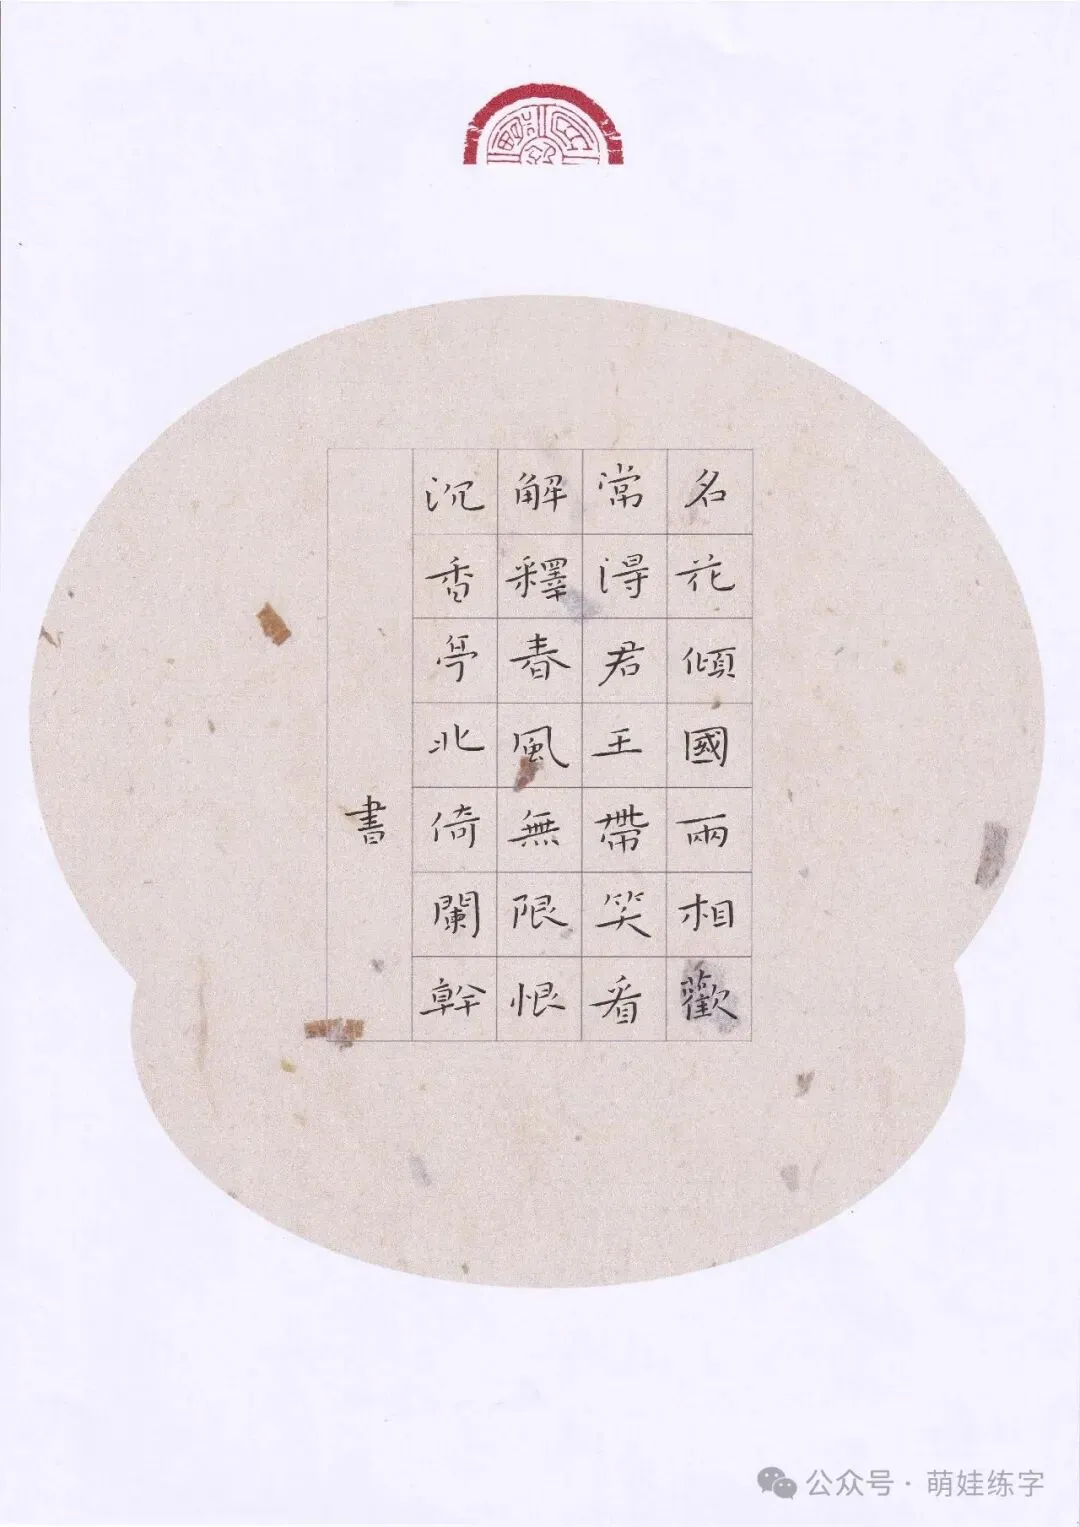 名花傾國兩相歡
常得君王帶笑看
解釋春風無限恨
沉香亭北倚闌幹
書
公众号 · 萌娃练字